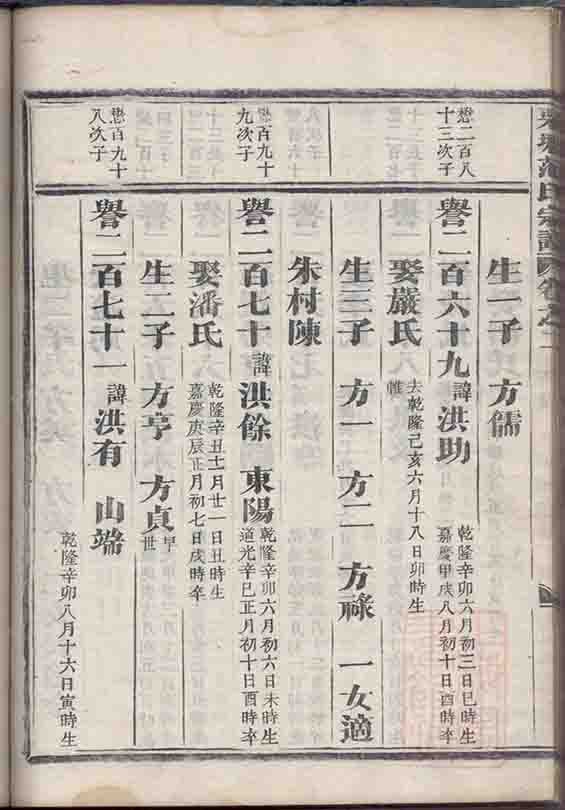 范氏宗譜
生一子 方儒
懋二百八十三次子
譽二百六十九 諱洪助 乾隆辛卯六月初三日巳時生 嘉慶甲戌八月初十日酉時卒
娶嚴氏 乾隆己亥六月十八日卯時生
生三子 方一 方二 方祿 一女適
朱村陳
懋百九十九次子
譽二百七十 諱洪餘 東陽 乾隆辛卯六月初六日未時生 道光辛巳正月初十日酉時卒
娶潘氏 乾隆辛丑十一月廿一日丑時生 嘉慶庚辰正月初七日戌時卒
生二子 方亨 方貞 早世
懋百九十八次子
譽二百七十一 諱洪有 山端
乾隆辛卯八月十六日寅時生